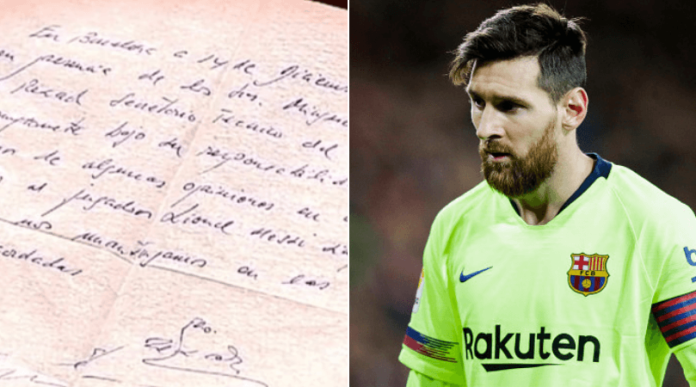 En Barcelona a 14 de Diciem
en presencia de los Srs. Mingue
Rexach Secretario Técnico del
ompromete bajo su responsabilid
ar de algunas opiniones en
al jugador Lionel Messi
nos mantengamos en las
cordadas
FCB
Rakuten